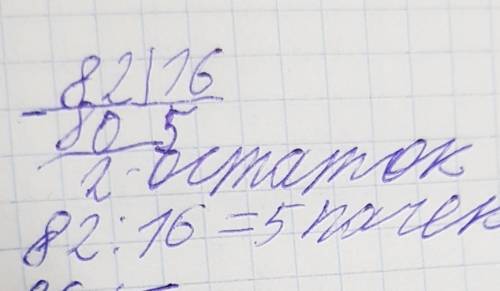 - 82|16
80 5
2 - остаток
82 : 16 = 5 пачек